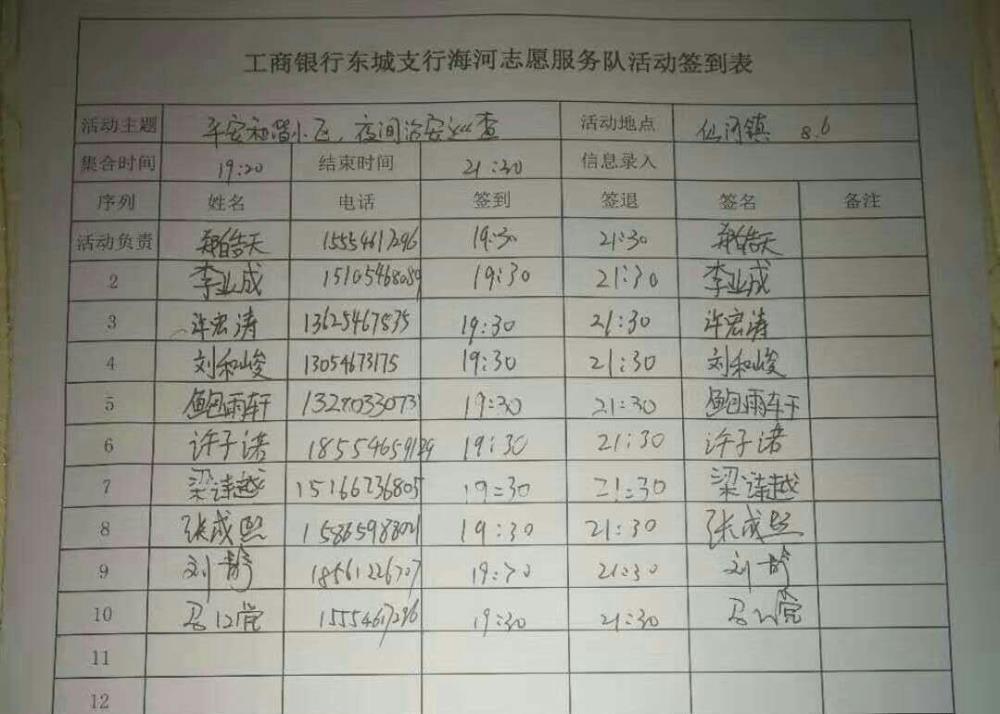 工商银行东城支行海河志愿服务队活动签到表
活动主题 平安和谐小区，夜间治安巡查 活动地点 仙河镇 8.6
集合时间 19:20 结束时间 21:30 信息录入
序列 姓名 电话 签到 签退 签名 备注
活动负责 郑皓天 15554617296 19:30 21:30 郑皓天
2 李业成 15105468089 19:30 21:30 李业成
3 许宏涛 13625467535 19:30 21:30 许宏涛
4 刘和峻 13054673175 19:30 21:30 刘和峻
5 鲍雨轩 19:30 21:30 鲍雨轩
6 许子诺 19:30 21:30 许子诺
7 15166736805 19:30 21:30
8 张成熙 15865988021 19:30 21:30 张成熙
9 刘静 18561226707 19:30 21:30 刘静
10 15554617296 19:30 21:30
11
12